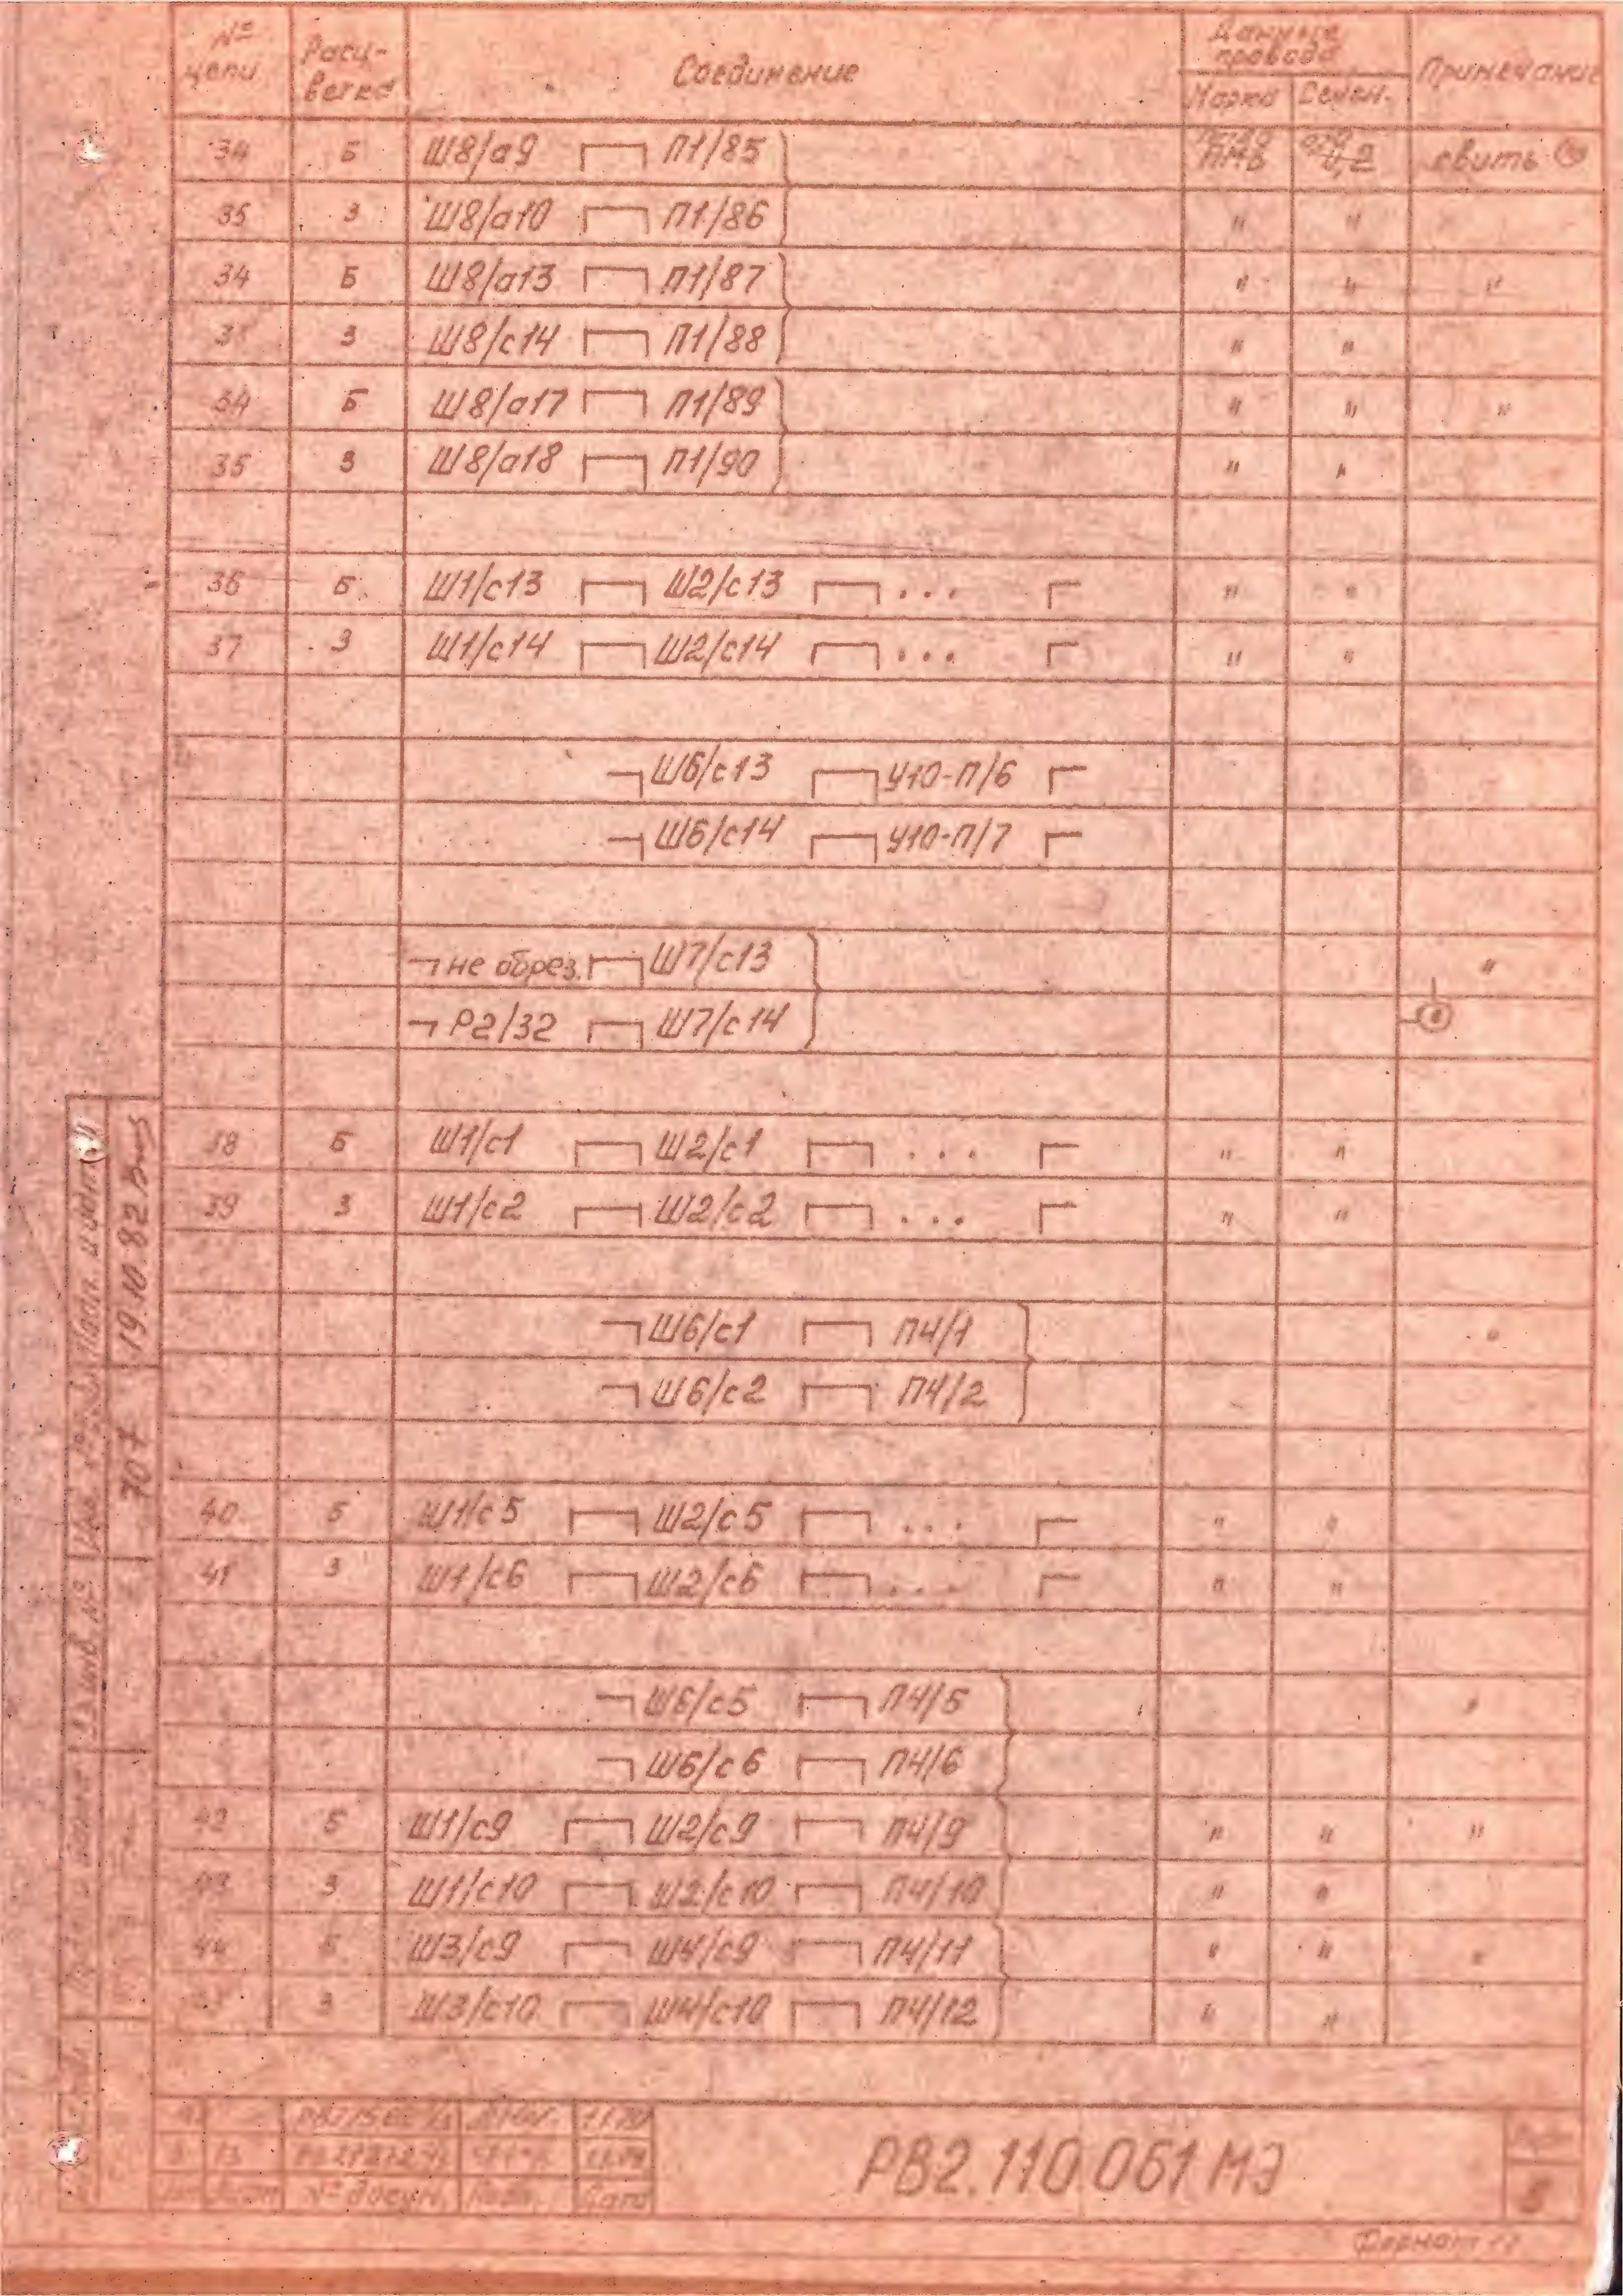 № цепи Расц-ветка Соединение Данные провода Примечание
Марка Сечен.
34 Б Ш8/а9 П1/85 ПМВ 0,2 свить
35 З Ш8/а10 П1/86 " "
34 Б Ш8/а13 П1/87 " " "
З Ш8/с14 П1/88 " "
34 Б Ш8/а17 П1/89 " " "
35 З Ш8/а18 П1/90 " "
36 Б Ш1/с13 Ш2/с13 ... " "
37 З Ш1/с14 Ш2/с14 ... " "
Ш6/с13 У10-П/6
Ш6/с14 У10-П/7
не обрез. Ш7/с13 "
Р2/32 Ш7/с14
38 Б Ш1/с1 Ш2/с1 ... " "
39 З Ш1/с2 Ш2/с2 ... " "
Ш6/с1 П4/1 "
Ш6/с2 П4/2
40 Б Ш1/с5 Ш2/с5 ... " "
41 З Ш1/с6 Ш2/с6 ... " "
Ш6/с5 П4/5 "
Ш6/с6 П4/6
42 Б Ш1/с9 Ш2/с9 П4/9 " " "
43 З Ш1/с10 Ш2/с10 П4/10 " "
44 Б Ш3/с9 Ш4/с9 П4/11 " " "
З Ш3/с10 Ш4/с10 П4/12 " "
№ докум. Подп. Дата
РВ2.110.061 МЭ
5
Формат
Подп. и дата
19.10.82
707